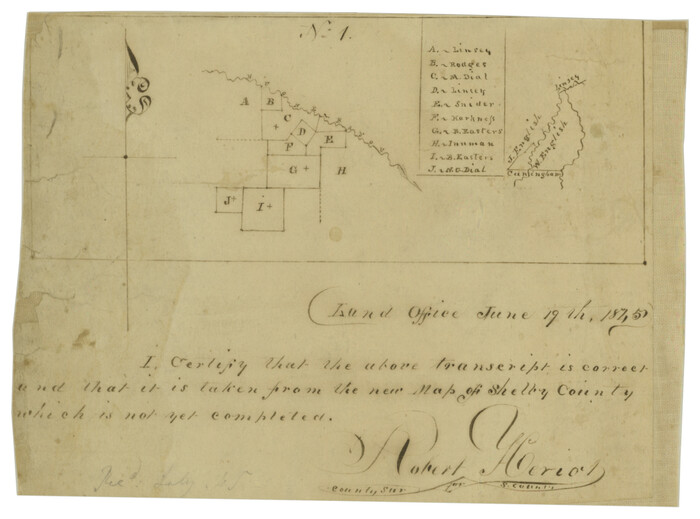 No. 1.
A. ~ Linsey
B. ~ Rodges
C. ~ A. Dial
D. ~ Linsey
E. ~ Snider
F. ~ Harkness
G. ~ R. Easters
H. ~ Inman
I. ~ B. Easters
J. ~ H. G. Dial
A
B
C
D
E
F
G
H
J
I
Linsey
J. English
W. English
Cunningham
(Land Office June 19th, 1845)
I. Certify that the above transcript is correct
and that it is taken from the new Map of Shelby County
which is not yet completed.
Robert Heriot
County Sur for S. County
Rec'd. July